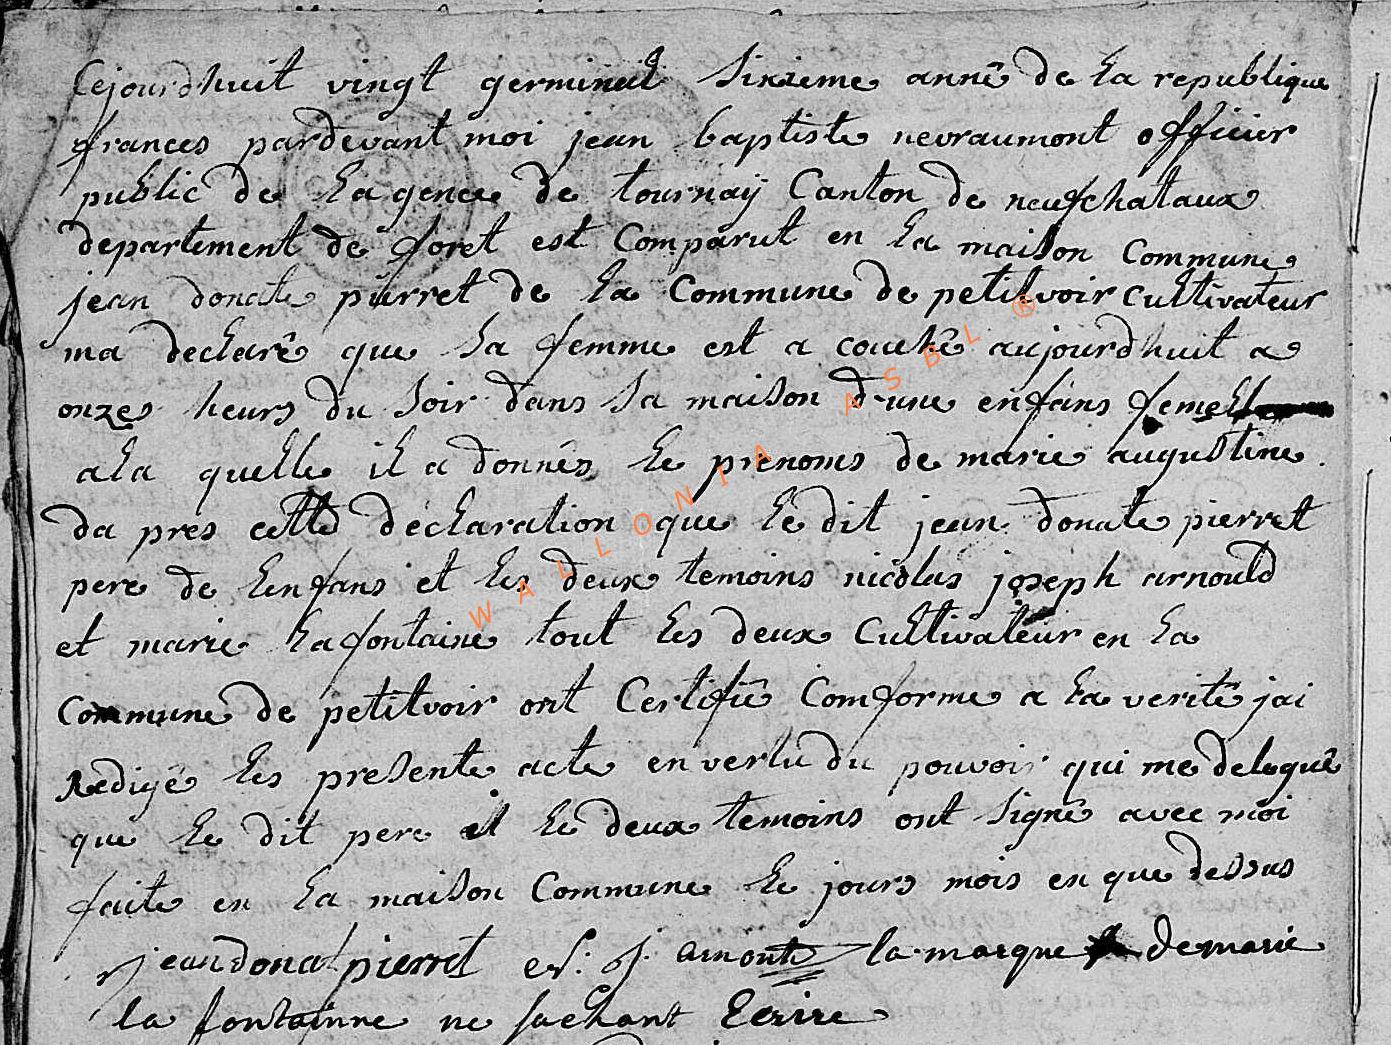 Cejourdhuit vingt germinal Sixieme anné de la republique
frances pardevant moi jean baptiste nevraumont officier
public de lagence de tournaÿ Canton de neufchataux
departement de foret est Comparut en la maison Commune
jean donate pierret de la Commune de petitvoir cultivateur
ma declaré que Sa femme est a couché aujourdhuit a
onzes heurs du Soir dans Sa maison d'une enfans femell
ala quelle il a donnés le prenoms de marie augustine
da pres cette déclaration que le dit jean donate pierret
pere de lenfans et les deux temoins nicolas joseph arnould
et marie lafontaine tout les deux Cultivateur en la
Commune de petitvoir ont Certifié Comforme a la verité jai
Redigé les presente acte en vertu du pouvoir qui me delegué
que le dit pere et le deux temoins ont Signé avec moi
faite en la maison Commune le jours mois en que dessus
jean donat pierret J. arnould la marque de marie
la fontainne ne sachant Ecrire
WALLONIA ASBL ®